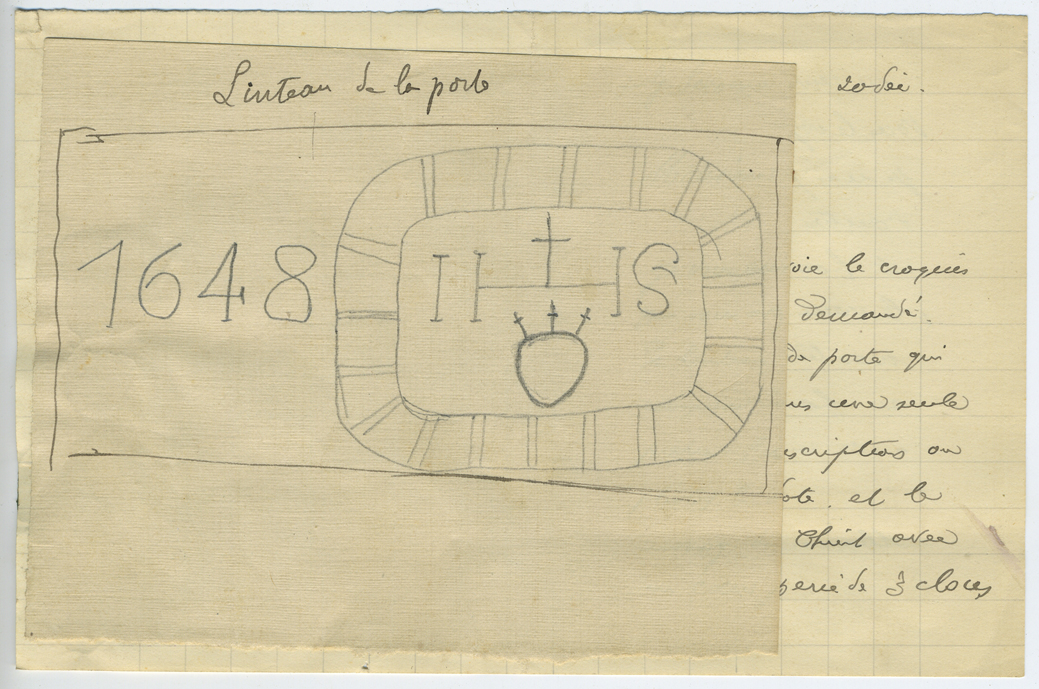 Linteau de la porte
1648
IHS
oie le croquis
demandé.
de porte qui
us une seule
scription ou
ote et le
Christ avec
percé de 3 clous